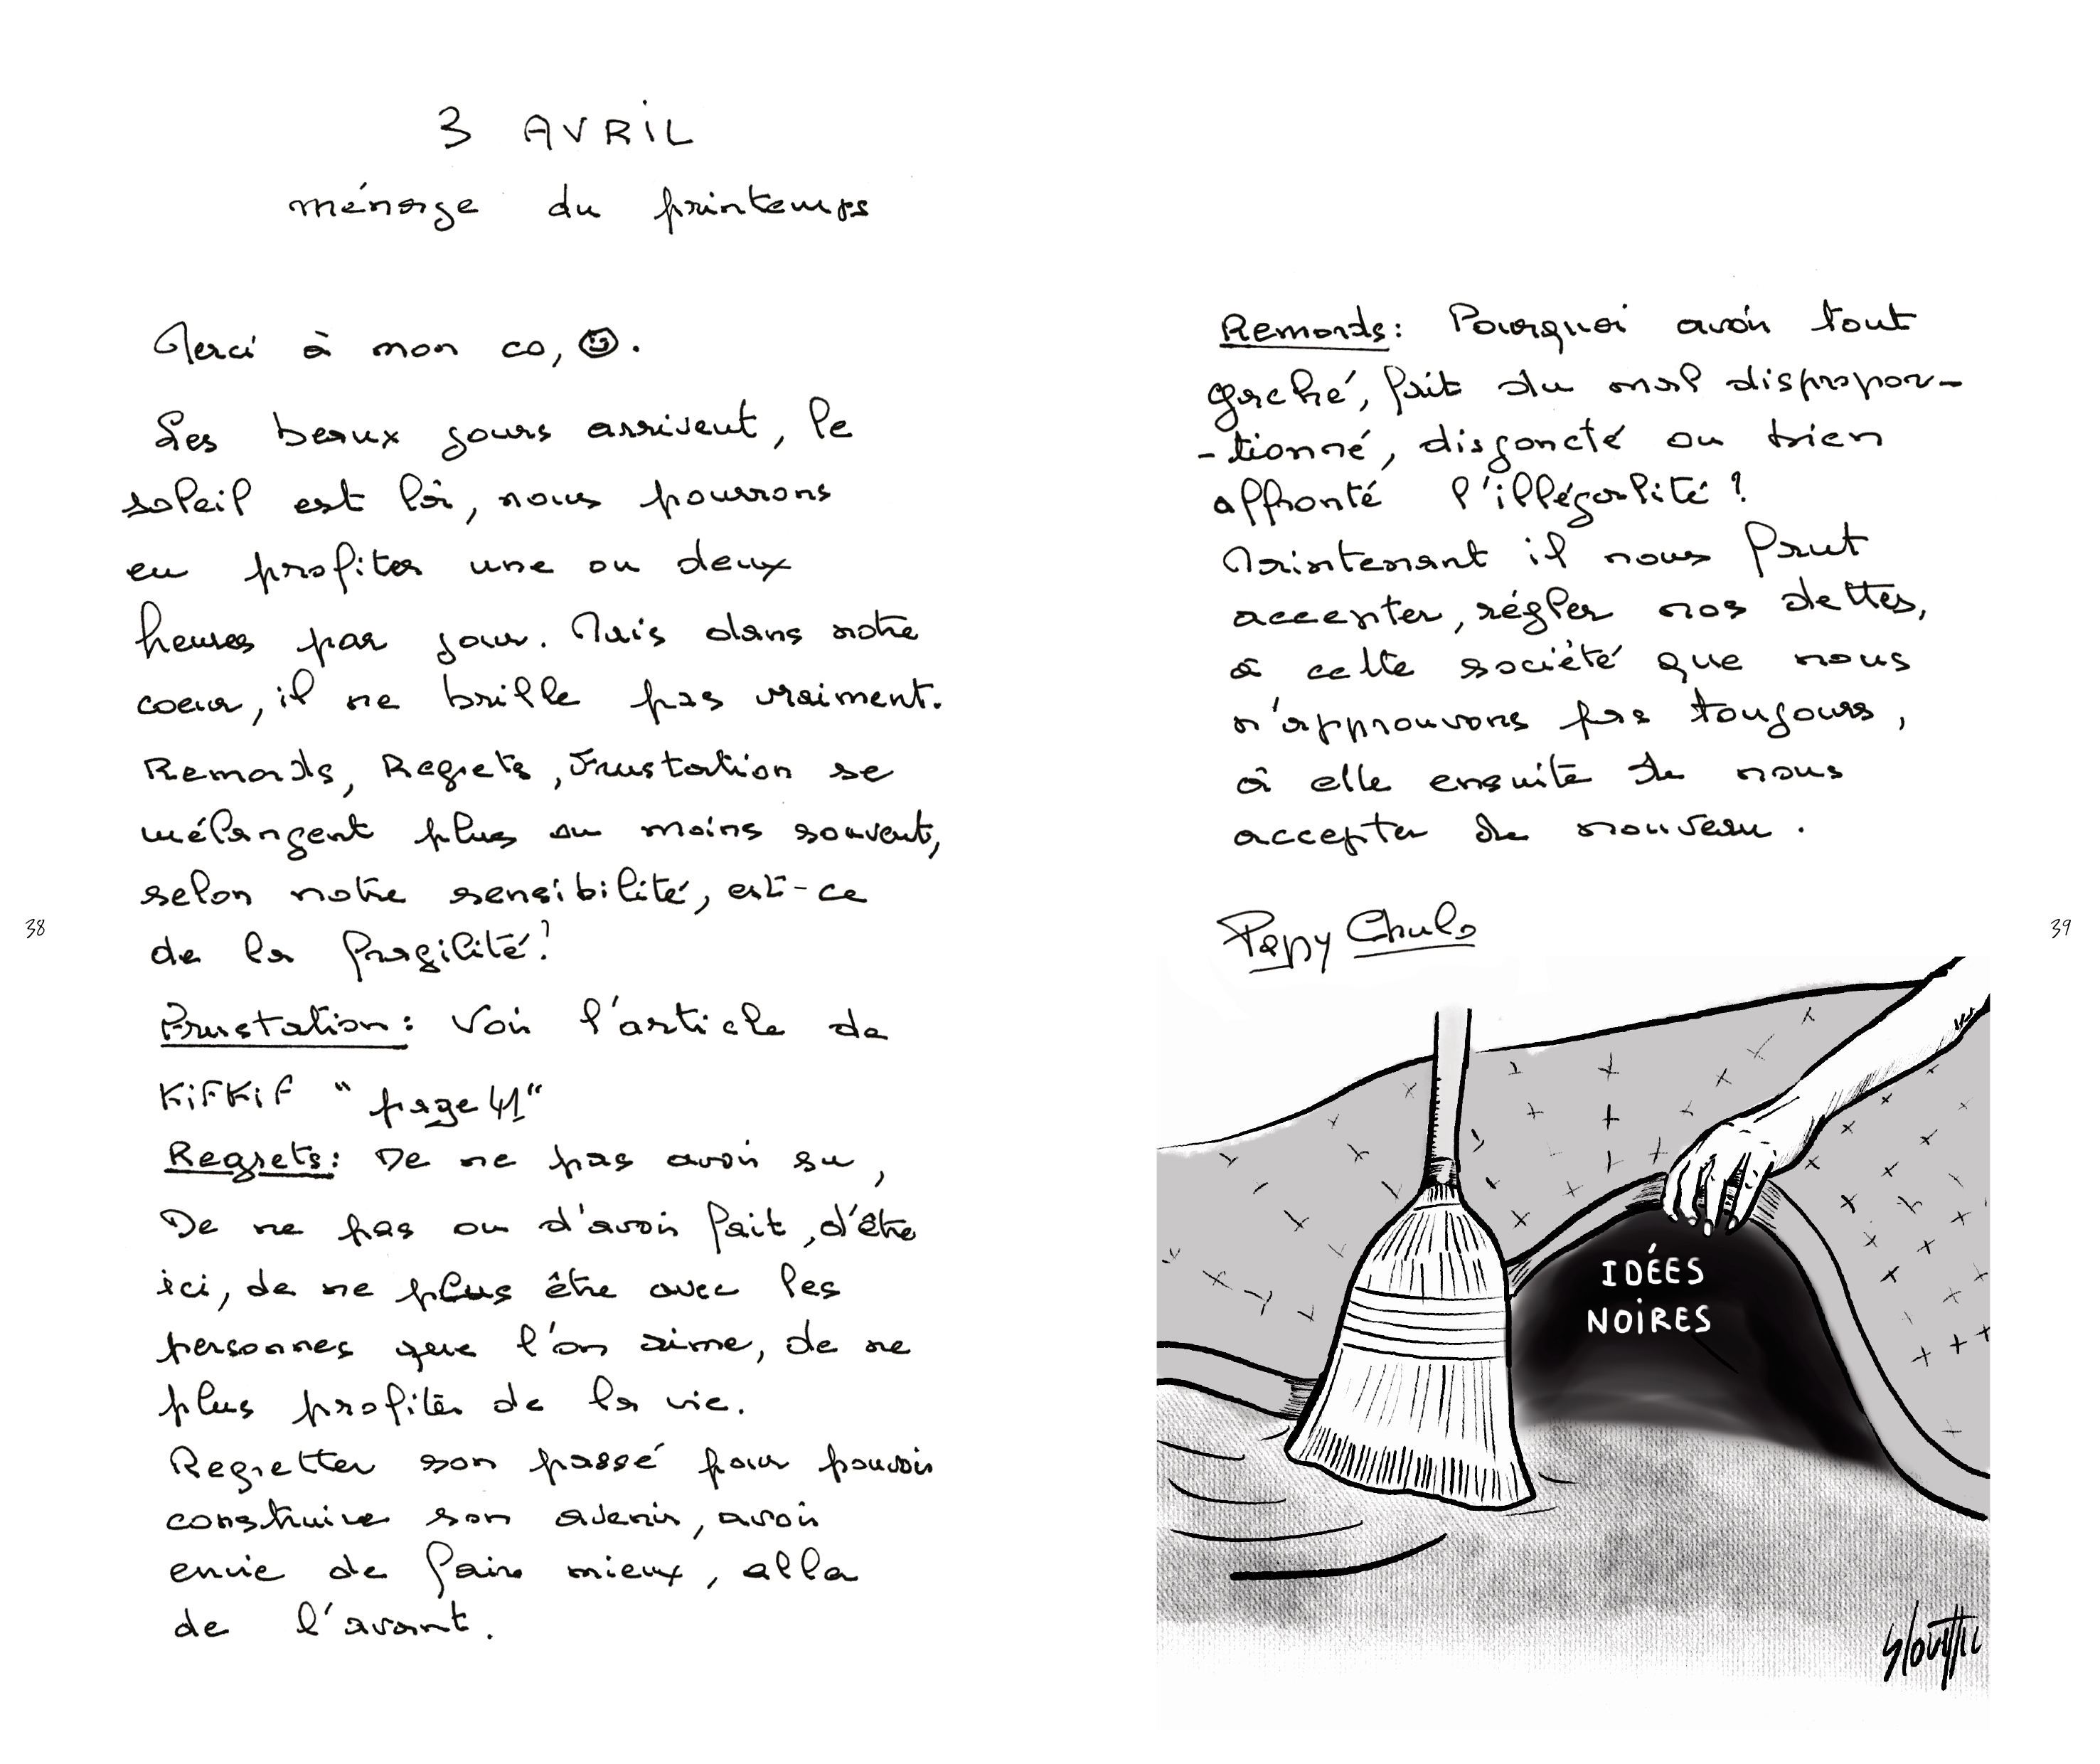 3 AVRIL
ménage du printemps
Merci à mon co, ☺.
Les beaux jours arrivent, le
soleil est là, nous pourrons
en profiter une ou deux
heures par jour. Mais dans notre
coeur, il ne brille pas vraiment.
Remords, Regrets, Frustation se
mélangent plus ou moins souvent,
selon notre sensibilité, est-ce
de la fragilité?
Frustation: Voir l'article de
KiFKiF "page 41"
Regrets: De ne pas avoir su,
De ne pas ou d'avoir fait, d'être
ici, de ne plus être avec les
personnes que l'on aime, de ne
plus profiter de la vie.
Regretter son passé pour pouvoir
construire son avenir, avoir
envie de faire mieux, aller
de l'avant.
38
Remords: Pourquoi avoir tout
gaché, fait du mal dispropor-
-tionné, disjoncté ou bien
affronté l'illégalité?
Maintenant il nous faut
accepter, régler nos dettes,
à cette société que nous
n'approuvons pas toujours,
à elle ensuite de nous
accepter de nouveau.
Papy Chulo
39
IDÉES
NOIRES